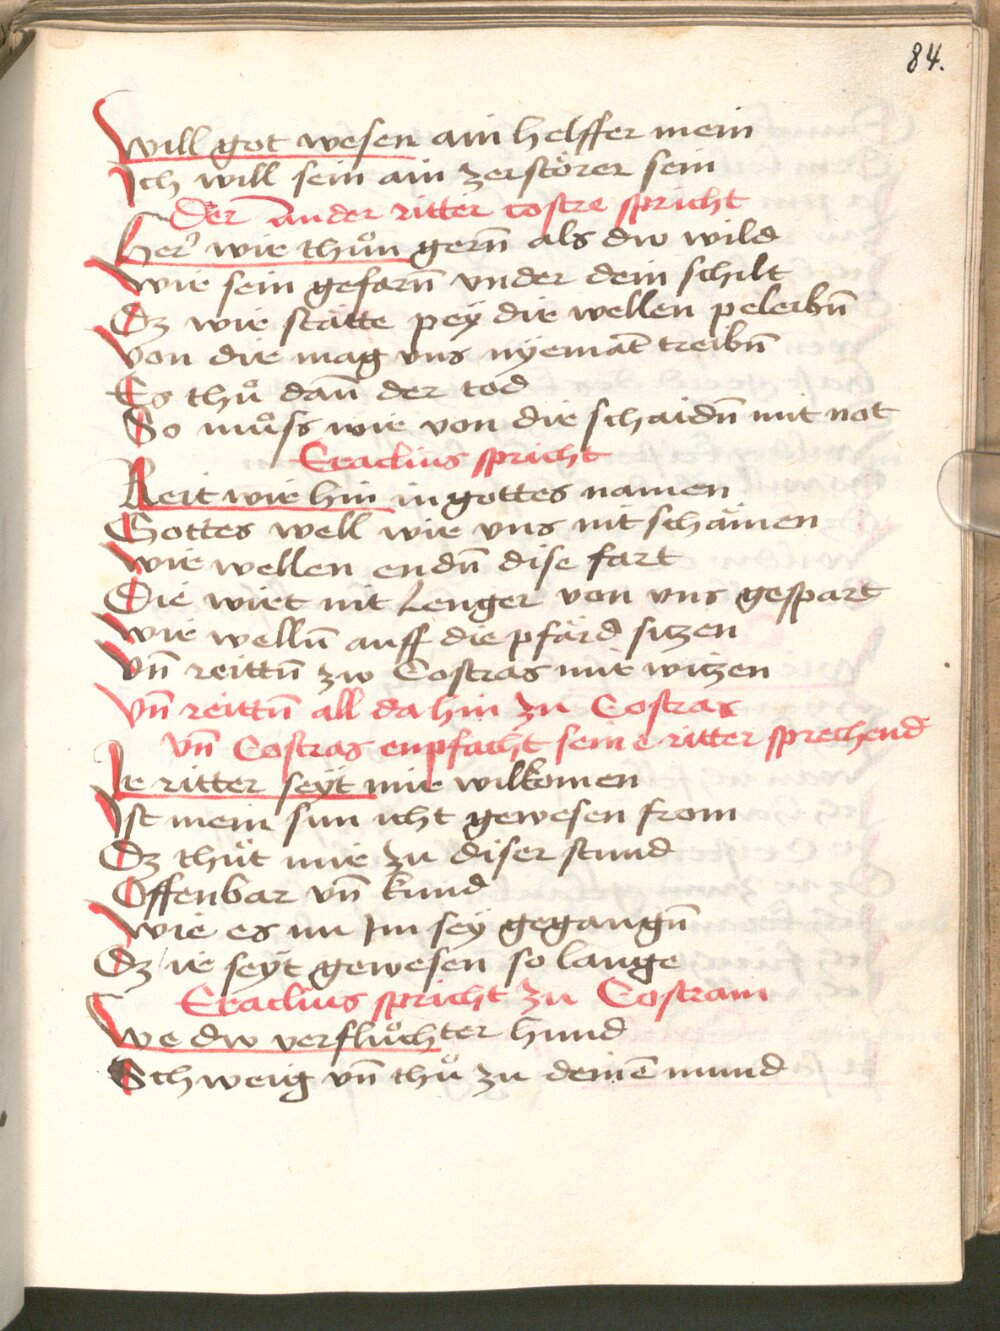 84.
Will got wesen ain helffer mein
Ich will sein ain zerstörer sein
Der ander ritter costre spricht
Her wir thůn gern̄ als dw wild
wir sein gefarn̄ vnder dein schilt
Dz wir stätte pey dir wellen peleibn̄
Von dir mag vns nyemāt treibn̄
Es thů dan̄ der tod
So můss wir von dir schaidn̄ mit not
Eraclius spricht
Reit wir hin in gottes namen
Gottes well wir vns nit schämen
wir wellen endn̄ dise fart
Die wirt nit Lenger von vns gespart
wir welln̄ auff die pfärd sitzen
Vn̄ reittn̄ zw Costras mit witzen
Vn̄ reittn̄ all da hin zu Costras
vn̄ Costras enpfacht seine ritter sprechend
Ir ritter seyt mir wilkomen
Ist mein sun icht gewesen from
Dz thůt mir zu diser stund
Offenbar vn̄ kund
Wie es nu Im sey gegangn̄
Dz ir seyt gewesen so lange
Eraclius spricht zu Costram
We dw verflůchter hund
Schweig vn̄ thů zu deinē mund